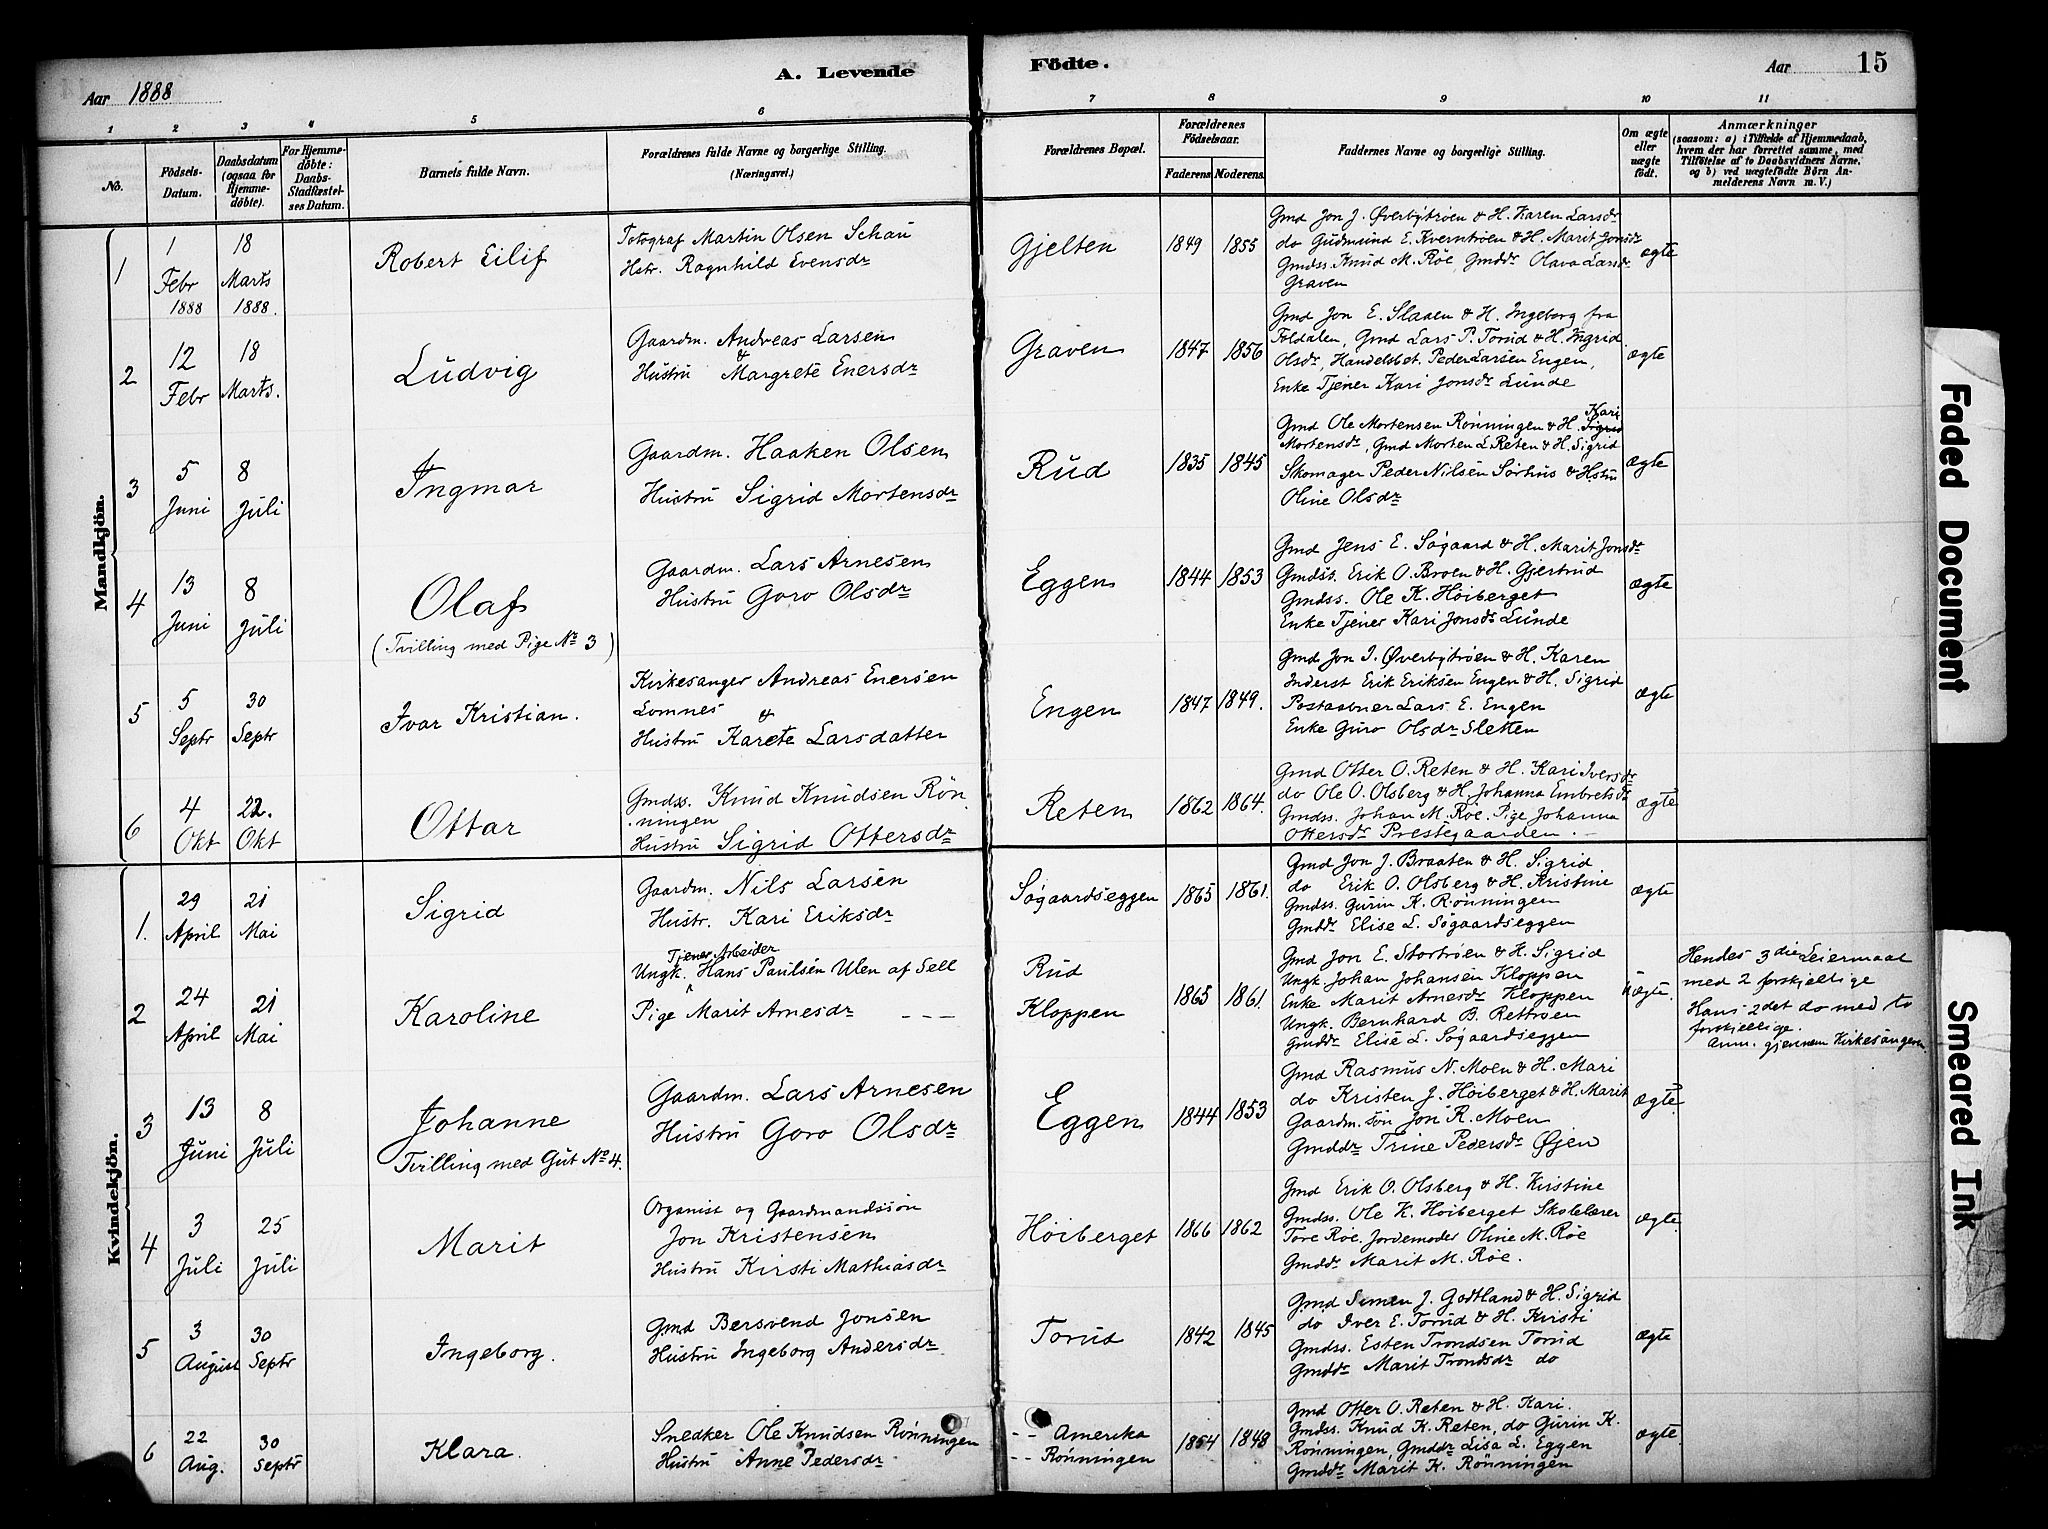 Aar 1888
A. Levende
Födte.
Aar
15
1 2 3 4 5 6 7 8 9 10 11
No.
Födsels-
Datum.
Daabsdatum
(ogsaa for
Hjemme-
döbte).
For Hjemme-
döbte:
Daabs-
Stadfæstel-
ses Datum.
Barnets fulde Navn.
Forældrenes fulde Navne og borgerlige Stilling.
(Næringsvei.)
Forældrenes Bopæl.
Forældrenes
Födselsaar.
Faderens. Moderens.
Faddernes Navne og borgerlige Stilling.
Om ægte
eller
uægte
födt.
Anmærkninger
(saasom: a) i Tilfælde af Hjemmedaab,
hvem der har forrettet samme, med
Tilföielse af to Daabsvidners Navne.
og b) ved uægtefödte Börn An-
melderens Navn m. V.)
Mandkjön.
1
1
Febr
1888
18
Marts
1888.
Robert Eilif
Fotograf Martin Olsen Schau
Hstr. Ragnhild Evensdr
Gjelten
1849
1855
Gmd Jon J. Øverbytrøen & H. Karen Larsdr
do Gudmund E. Kverntrøen & H. Marit Jonsdr
Gmdss. Knud M. Røe, Gmddr Olava Larsdr
Graven
ægte
2
12
Febr
18
Marts.
Ludvig
Gaardm. Andreas Larsen
&
Hustru Margrete Enersdr
Graven
1847
1856
Gmd Jon E. Slaaen & H. Ingeborg fra
Foldalen, Gmd Lars P. Torud & H. Ingrid
Olsdr, Handelsbet. Peder Larsen Engen,
Enke Tjener Kari Jonsdr Lunde
ægte
3
5
Juni
8
Juli
Ingmar
Gaardm. Haaken Olsen
Hustru Sigrid Mortensdr
Rud
1835
1845
Kari
Gmd Ole Mortensen Rønningen & H. Sigrid
Mortensdr, Gmd Morten L. Reten & H. Sigrid
Skomager Peder Nilsen Sørhus & Hstru
Oline Olsdr
ægte
4
13
Juni
8
Juli
Olaf
(Tvilling med Pige No 3)
Gaardm. Lars Arnesen
Hustru Goro Olsdr
Eggen
1844
1853
Gmd Jens E. Søgaard & H. Marit Jonsdr
Gmdss. Erik O. Broen & H. Gjertrud
Gmdss. Ole K. Høiberget
Enke Tjener Kari Jonsdr Lunde
ægte
5
5
Septr
30
Septr
Ivar Kristian.
Kirkesanger Andreas Enersen
Lomnes &
Hustru Karete Larsdatter
Engen
1847
1849.
Gmd Jon I. Øverbytrøen & H. Karen
Inderst Erik Eriksen Engen & H. Sigrid
Postaabner Lars E. Engen
Enke Guro Olsdr Sletten
ægte
6
4
Okt
22.
Okt
Ottar
Gmdss. Knud Knudsen Røn-
ningen
Hustru Sigrid Ottersdr
Reten
1862
1864.
Gmd Otter O. Reten & H. Kari Iversdr
do Ole O. Olsberg & H. Johanna Embretsdr
Gmdss. Johan M. Røe. Pige Johanna
Ottersdr Prestegaarden.
ægte
Kvindekjön.
1.
29
April
21
Mai
Sigrid
Gaardm. Nils Larsen
Hustr. Kari Eriksdr
Søgaardseggen
1865
1861.
Gmd Jon J. Braaten & H. Sigrid
do Erik O. Olsberg & H. Kristine
Gmdss. Gurin K. Rønningen
Gmddr Elise L. Søgaardseggen
ægte
2
24
April
21
Mai
Karoline
Tjener Arbeider
Ungk. Hans Paulsen Ulen af Sell
Pige Marit Arnesdr - - -
Rud
Kloppen
1865
1861.
Gmd Jon E. Stortrøen & H. Sigrid
Ungk Johan Johansen Kloppen
Enke Marit Arnesdr Kloppen
Ungk. Bernhard B. Rettrøen
Gmddr Elise L. Søgaardseggen
uægte.
Hendes 3die Leiermaal
med 2 forskjellige
Hans 2det do med to
forskjellige.
Anm. gjennem Kirkesangeren.
3
13
Juni
8
Juli
Johanne
Tvilling med Gut No 4.
Gaardm. Lars Arnesen
Hustru Goro Olsdr
Eggen
1844
1853
Gmd Rasmus N. Moen & H. Mari
do Kristen J. Høiberget & H. Marit
Gaardm. søn Jon R. Moen
Gmddr Trine Pedersdr Øien
ægte
4
3
Juli
25
Juli
Marit
Organist og Gaardmandssøn
Jon Kristensen
Hustru Kirsti Mathiasdr
Høiberget
1866
1862
Gmd Erik O. Olsberg & H. Kirstine
Gmdss. Ole K. Høiberget Skolelærer
Tore Røe. Jordemoder Oline M. Røe
Gmddr Marit M. Røe.
ægte
5
3
August
30
Septr
Ingeborg.
Gmd Bersvend Jonsen
Hustru Ingeborg Andersdr
Torud
1842
1845
Gmd Simen J. Godtland & H. Sigrid
do Iver E. Torud & H. Kristi
Gmdss. Esten Trondsen Torud
Gmddr Marit Trondsdr do
ægte
6
22
Aug.
30
Septr
Klara.
Snedker Ole Knudsen Rønningen
Hustru Anne Pedersdr
- - Amerika
- - Rønningen
1854
1848
Gmd Otter O. Reten & H. Kari.
Gmdss. Knud K. Reten, do Gurin K.
Rønningen, Gmddr Lisa L. Eggen
Gmddr Marit K. Rønningen
ægte.
Faded Document
Smeared Ink